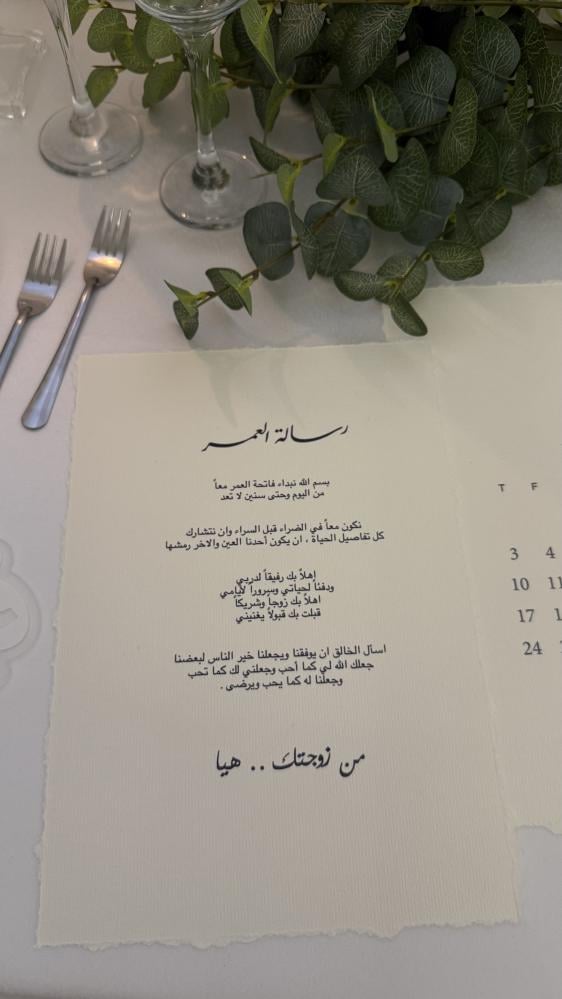 رسالة العمر
بسم الله نبداء فاتحة العمر معاً
من اليوم وحتى سنين لا تعد
نكون معاً في الضراء قبل السراء وان نتشارك
كل تفاصيل الحياة ، ان يكون أحدنا العين والاخر رمشها
إهلاً بك رفيقاً لدربي
ودفئاً لحياتي وسروراً لأيامي
اهلاً بك زوجاً وشريكاً
قبلت بك قبولاً يغنيني
اسأل الخالق ان يوفقنا ويجعلنا خير الناس لبعضنا
جعلك الله لي كما أحب وجعلني لك كما تحب
وجعلنا له كما يحب ويرضى .
من زوجتك .. هيا
T F
3 4
10 11
17
24